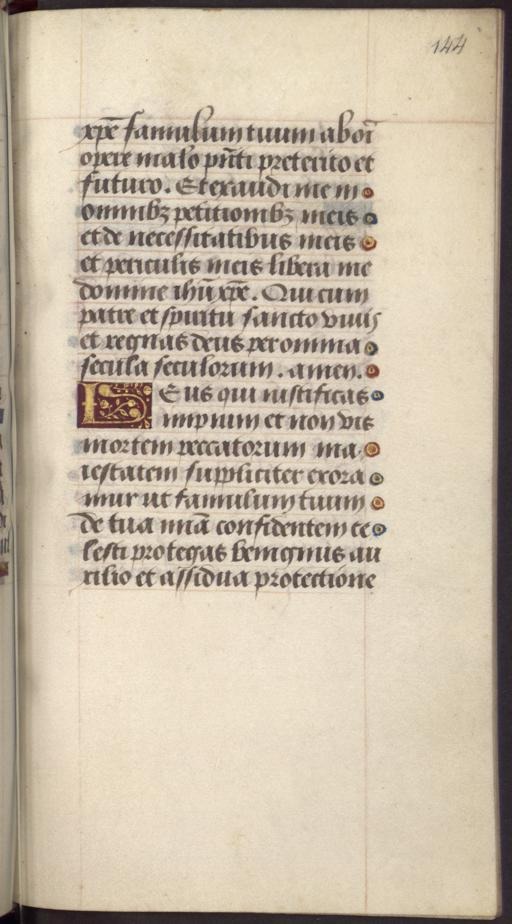 144
xpē famulum tuum ab oī
opere malo pn̄ti preterito et
futuro. Et exaudi me in
omnibꝫ petitionibꝫ meis
et de necessitatibus meis
et periculis meis libera me
domine ihū xpē. Qui cum
patre et spiritu sancto viuis
et regnas deus per omnia
secula seculorum. amen.
Deus qui iustificas
impium et non vis
mortem peccatorum ma
iestatem suppliciter exora
mur ut famulum tuum
de tua mīa confidentem ce
lesti protegas benignus au
xilio et assidua protectione